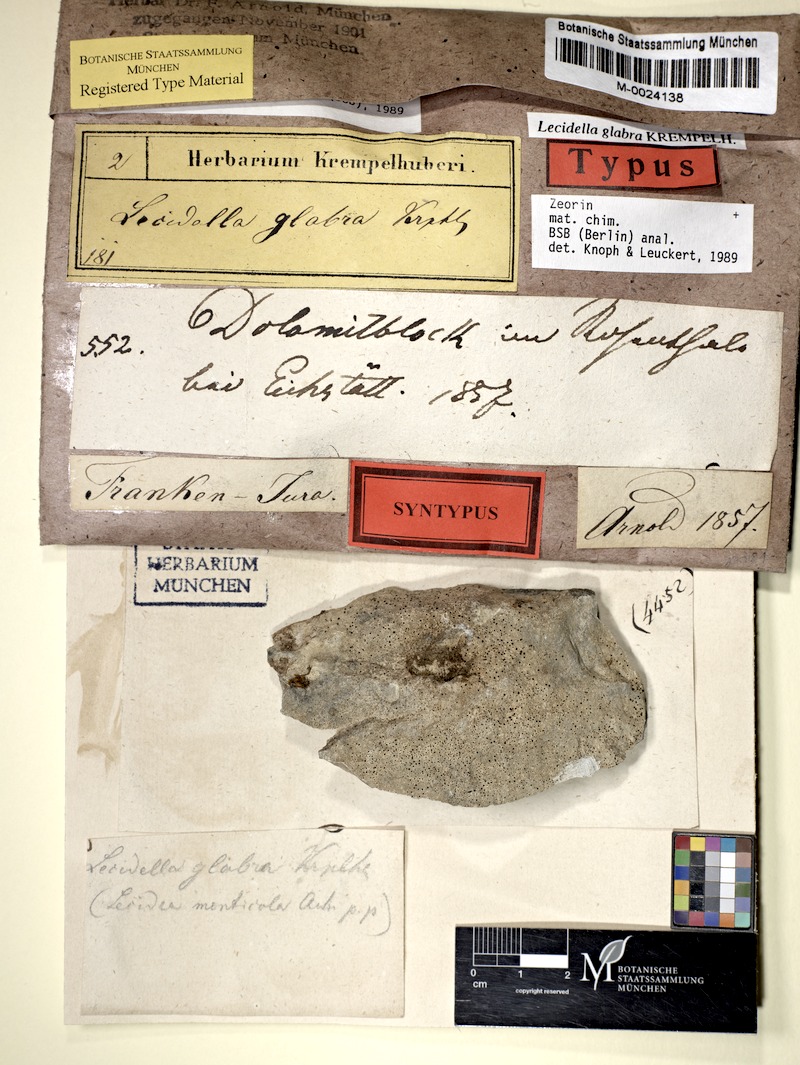 Herbar Dr. F. Arnold, München
zugegangen November 1901
München
BOTANISCHE STAATSSAMMLUNG
MÜNCHEN
Registered Type Material
Botanische Staatssammlung München
M-0024138
1989
Lecidella glabra KREMPELH.
Typus
2 Herbarium Krempelhuberi.
Lecidella glabra Krphb
181
Zeorin +
mat. chim.
BSB (Berlin) anal.
det. Knoph & Leuckert, 1989
552. Dolomitblock im Rosenthale
bei Eichstätt. 1857.
Franken-Jura.
SYNTYPUS
Arnold 1857.
HERBARIUM
MÜNCHEN
(4452)
Lecidella glabra Krphb
(Lecidea monticola Ach. p.p)
0 1 2
cm
copyright reserved
M BOTANISCHE
STAATSSAMMLUNG
MÜNCHEN